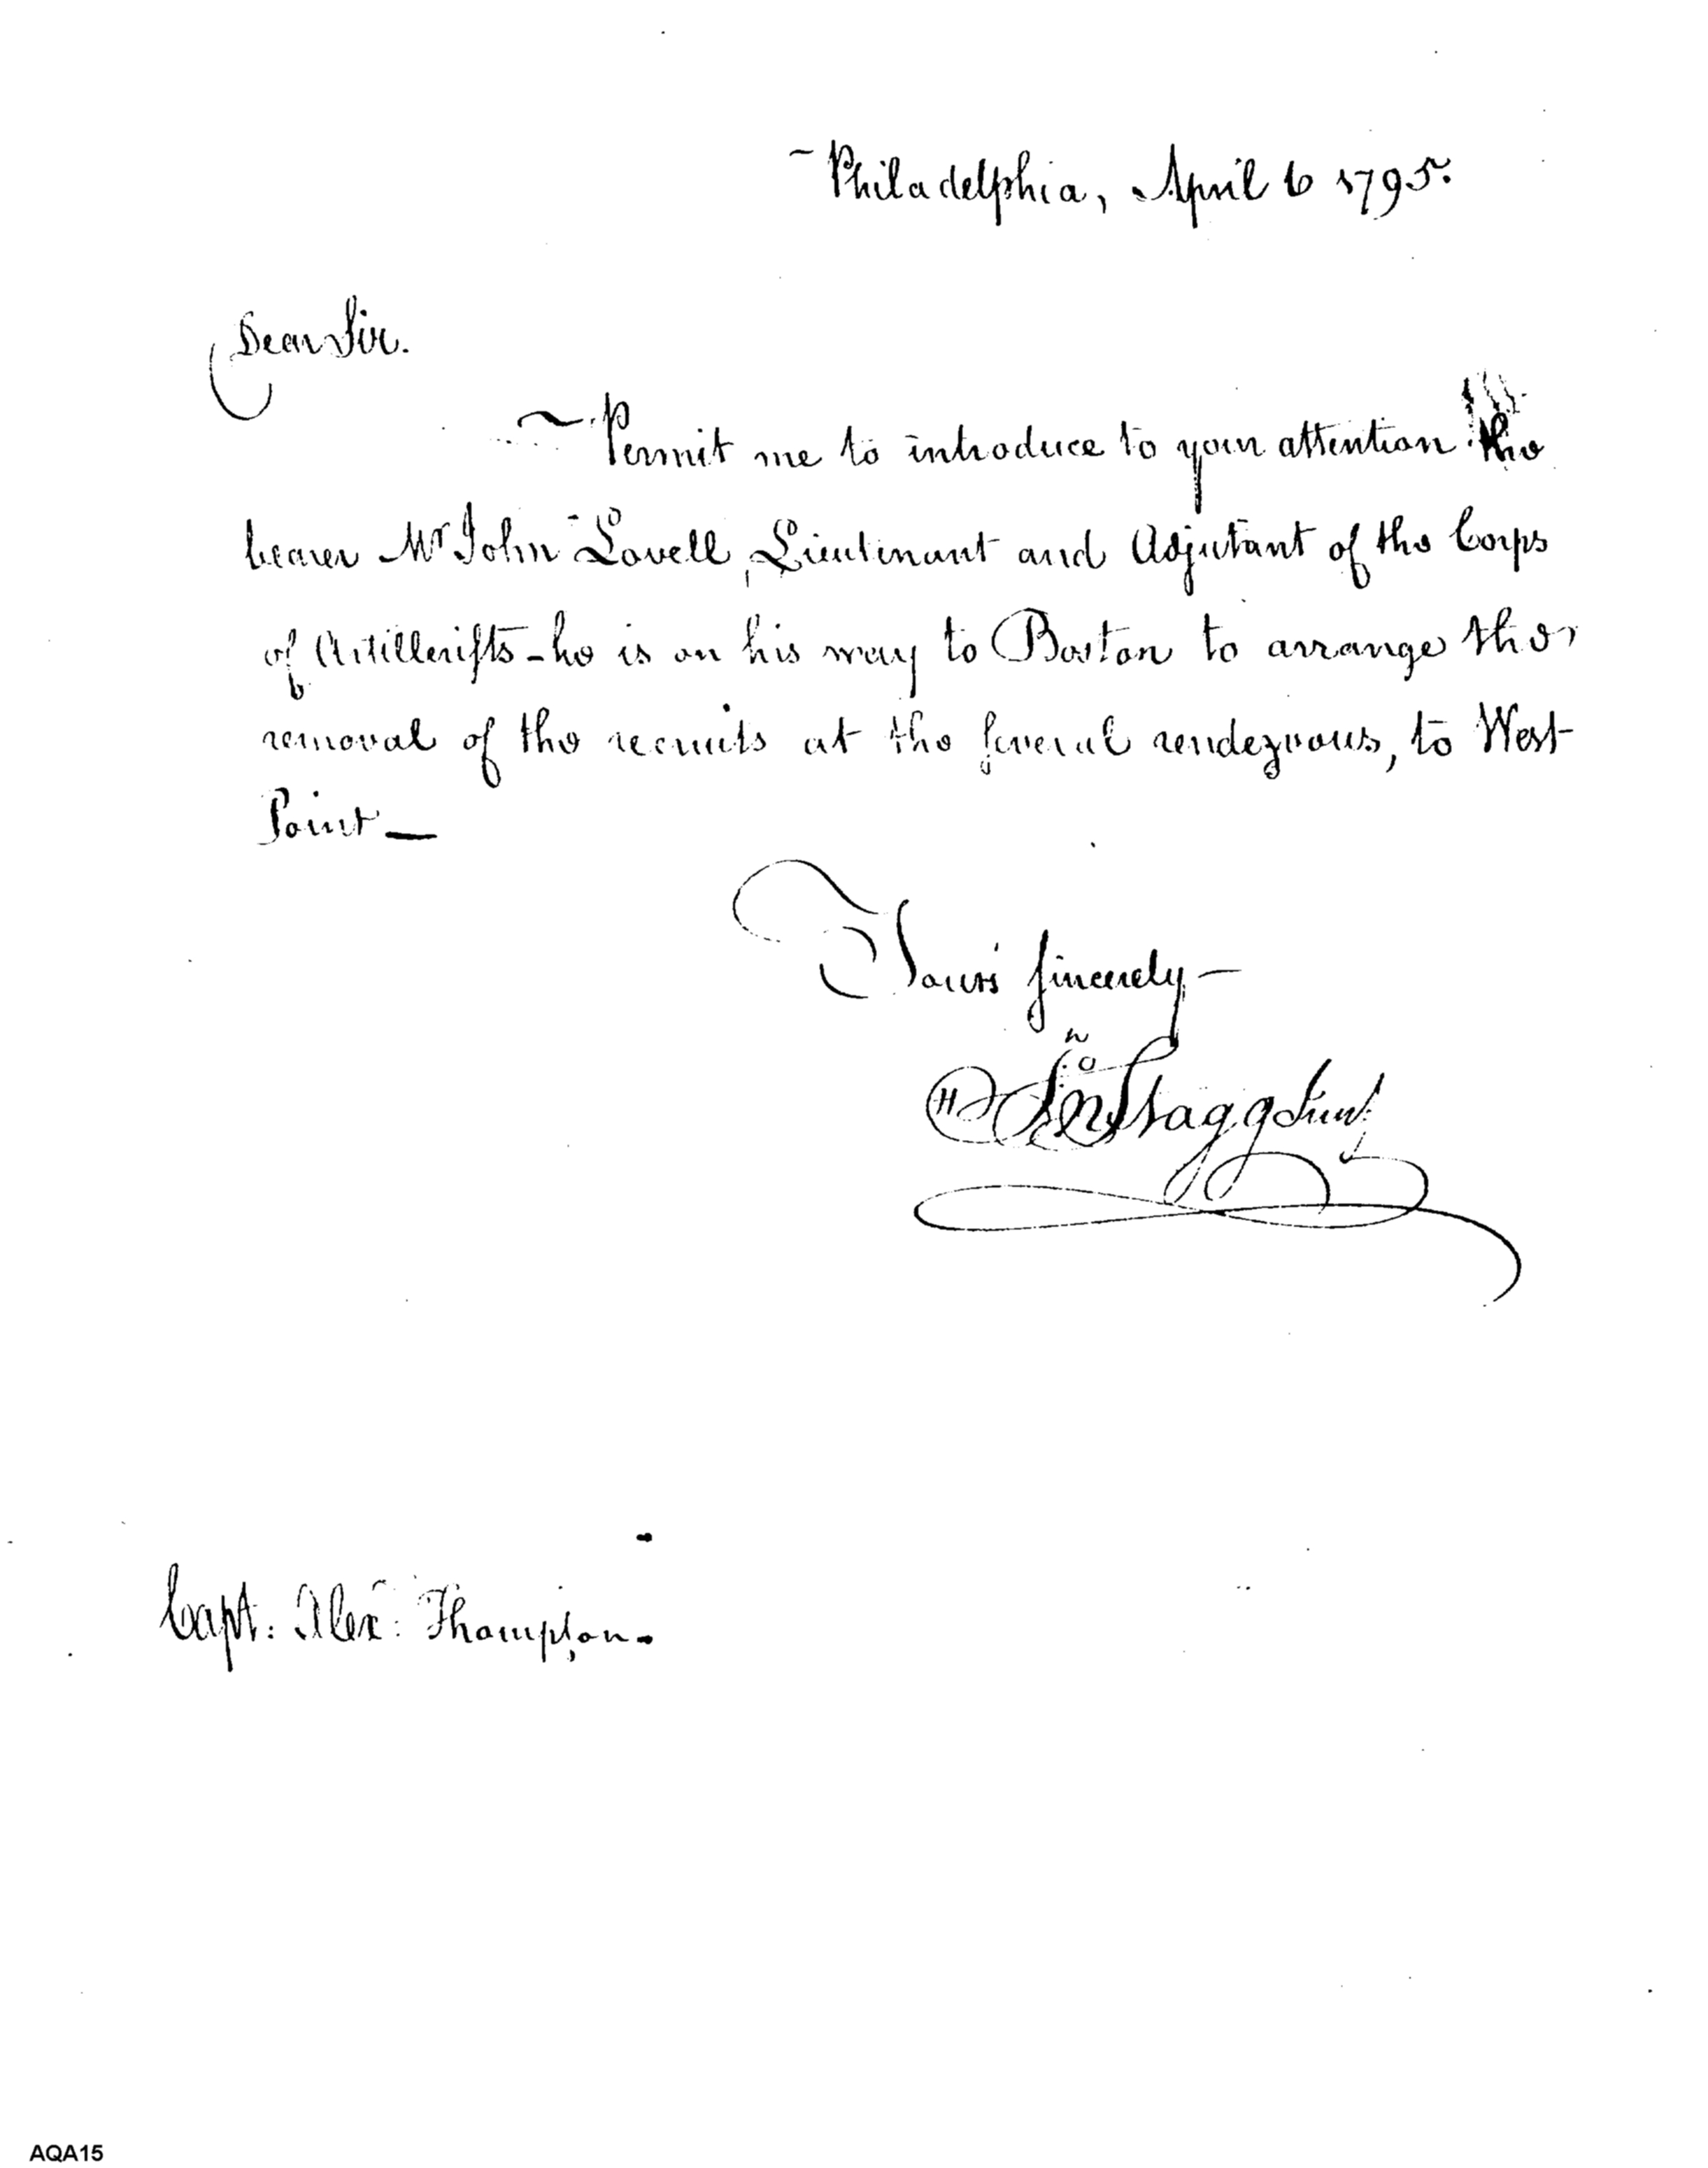 Philadelphia, April 6 1795.
Dear Sir.
Permit me to introduce to your attention the
bearer Mr John Lovell, Lieutenant and Adjutant of the Corps
of Artillerists - he is on his way to Boston to arrange the
removal of the recruits at the several rendezvous, to West
Point —
Yours sincerely —
Jno Stagg Junr
Capt: Alexr: Thompson -
AQA15